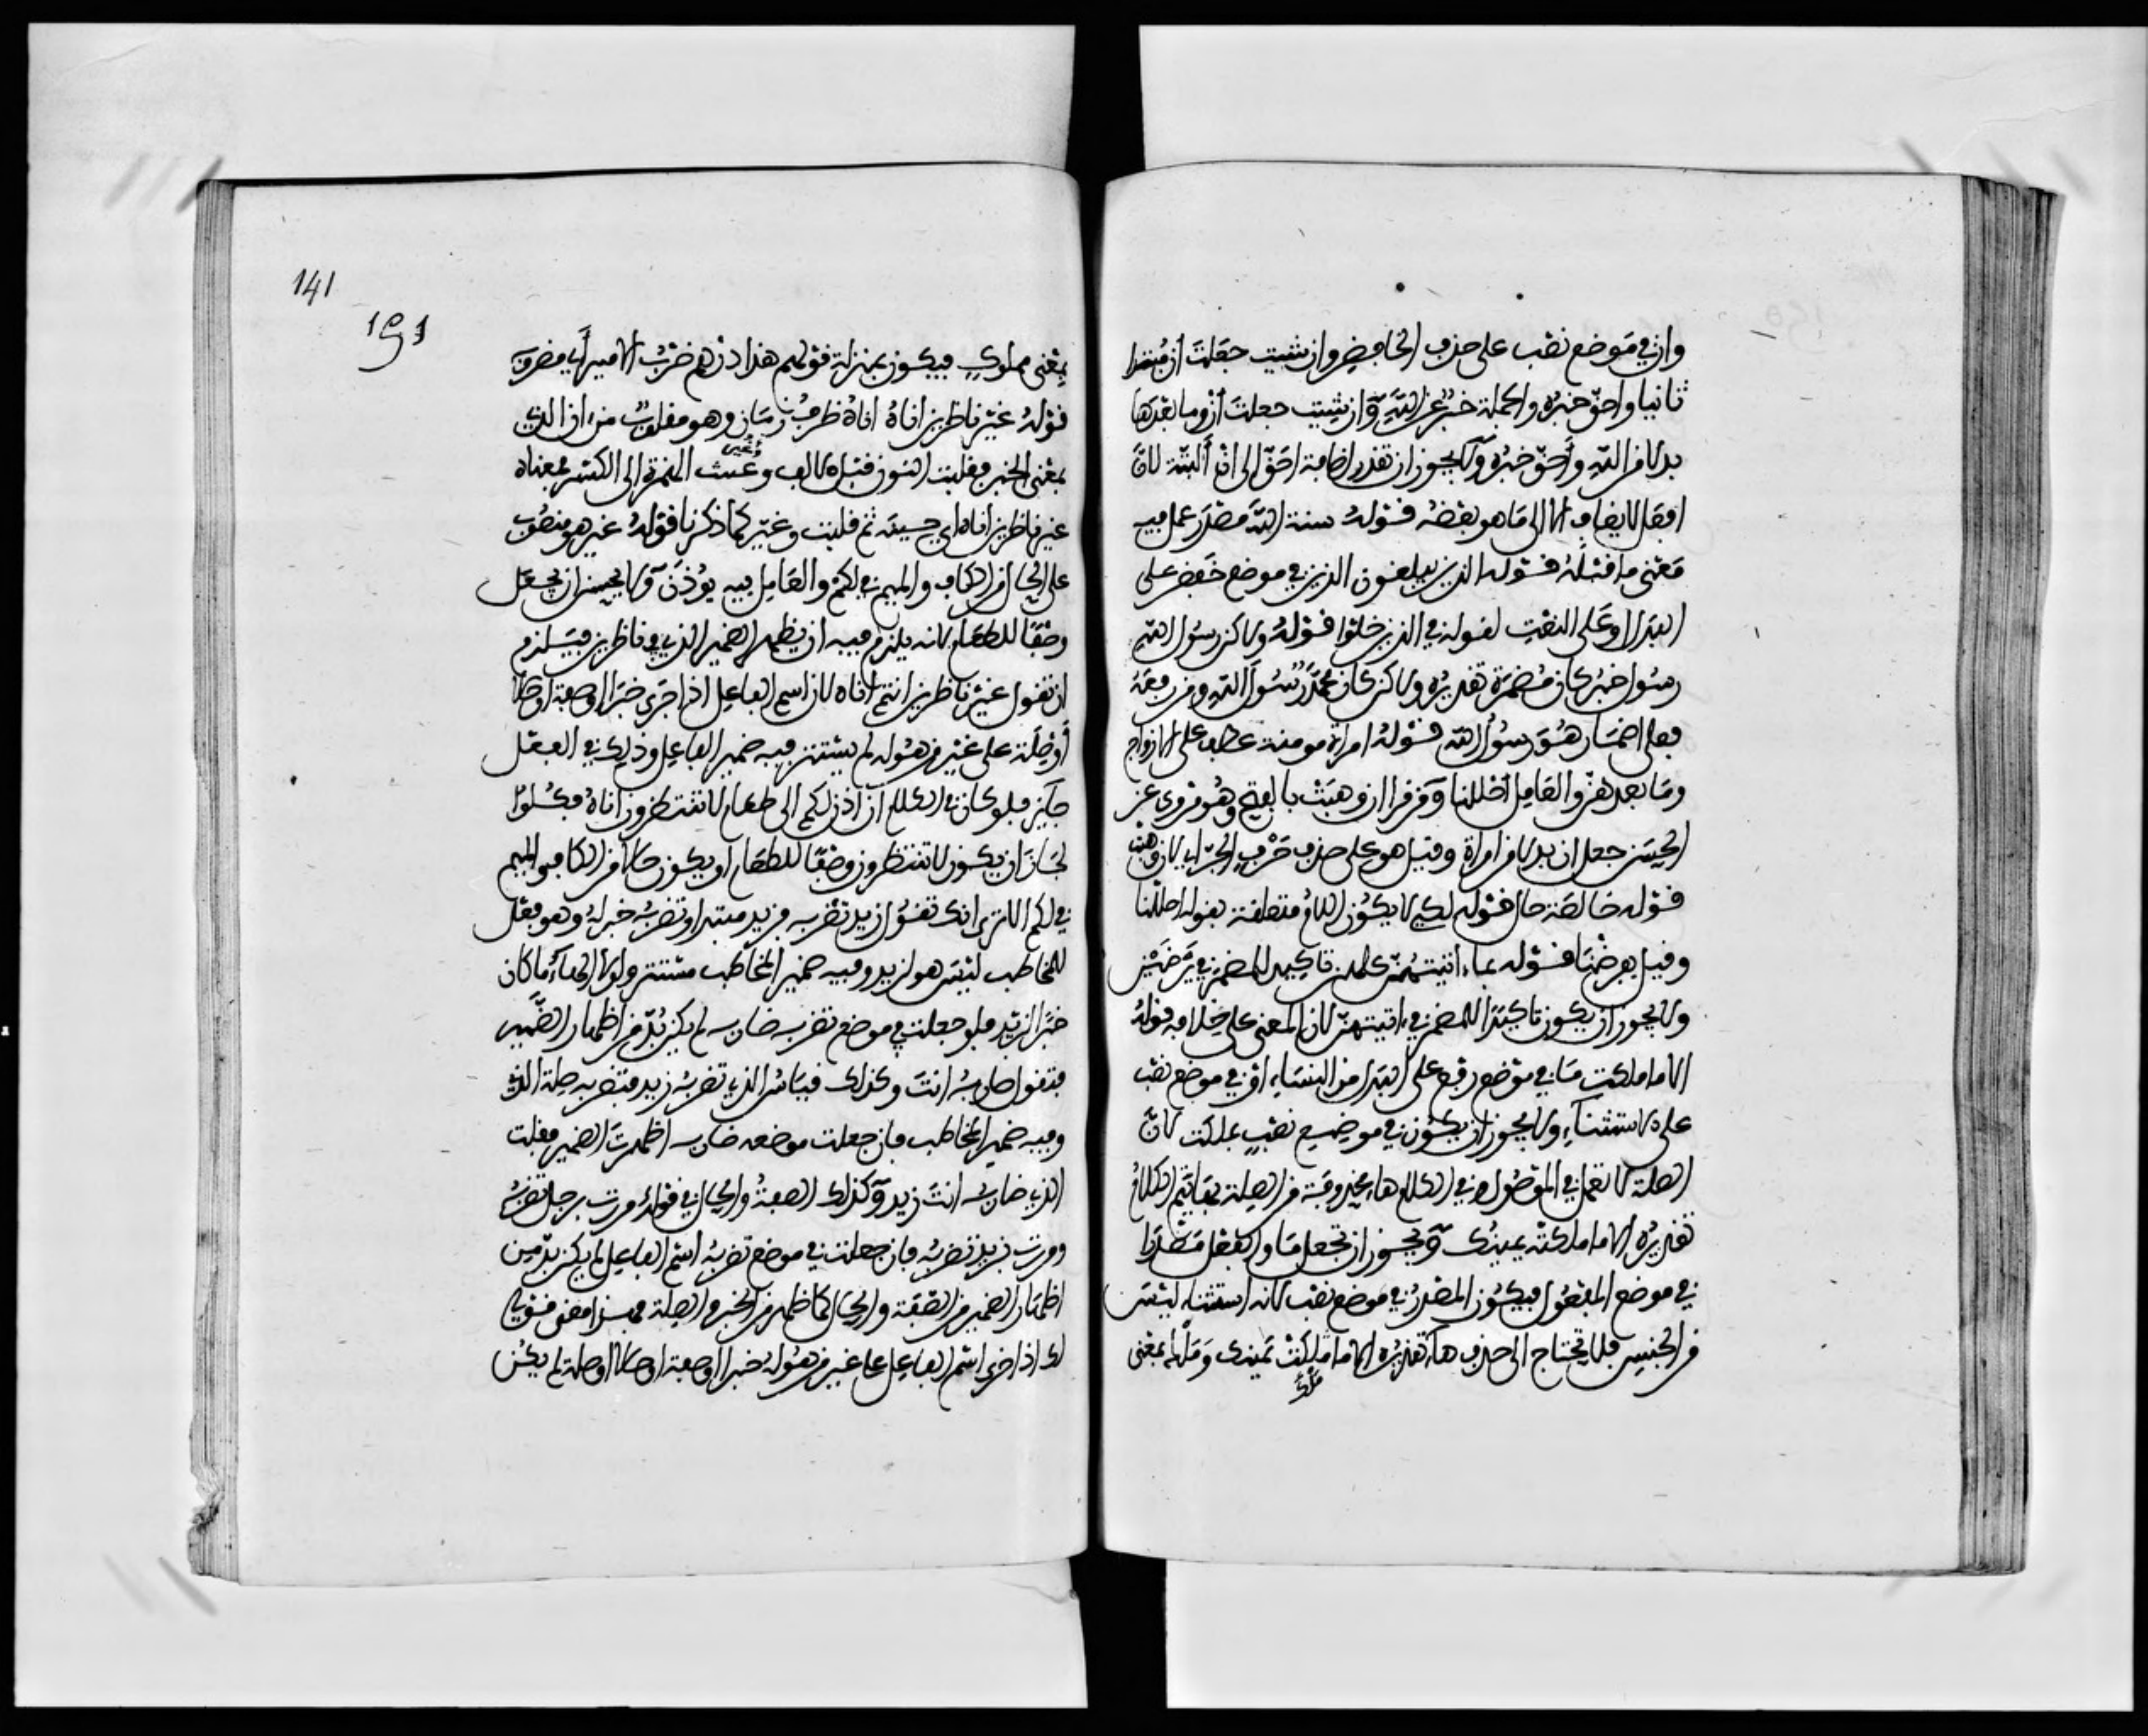 وان في موضع نصب على حذف الخافض وان شيت جعلت ان مبتدا
ثانيا واحق خبره والجملة خبر عن الله وان شيت جعلت ان وما بعدها
بدلا من الله واحق خبره ولا يجوز ان تقدر اضافة احق الى ان البتة لان
افعل لا يضاف الا الى ما هو بعضه قوله سنة الله مصدر عمل فيه
معنى ما قبله قوله الذين يبلغون الذين في موضع خفض على
البدل او على النعت لقوله في الذين خلوا قوله ولاكن رسول الله
رسول خبر كان مضمرة تقديره ولاكن كان محمد رسول الله ومن رفعه
فعلى اضمار هو رسول الله قوله امراة مومنة عطف على الازواج
وما بعدهن والعامل احللنا ومن قرا ان وهبت بالفتح وهو مروي عن
الحسن جعل ان بدلا من امراة وقيل هو على حذف حرف الجر اي لان وهبت
قوله خالصة حال قوله لكي لا يكون اللام متعلقة بقوله احللنا
وقيل بفرضنا قوله بما اتيتهن كلهن تاكيد للمضمر في يرضين
ولا يجوز ان يكون تاكيدا للمضمر في اتيتهن لان المعنى على خلافه قوله
الا ما ملكت ما في موضع رفع على البدل من النساء او في موضع نصب
على الاستثناء ولا يجوز ان يكون في موضع نصب بملكت لان
الصلة لا تعمل في الموصول وفي الكلام هاء محذوفة من الصلة بها يتم الكلام
تقديره الا ما ملكته يمينك ويجوز ان تجعل ما والفعل مصدرا
في موضع المفعول فيكون المصدر في موضع نصب لانه استثناء ليس
من الجنس فلا يحتاج الى حذف هاء تقديره الا ما ملكت يمينك وملك بمعنى
ملك
141
191
بمعنى مملوك فيكون بمنزلة قولهم هذا درهم ضرب الامير اي مضروبه
قوله غير ناظرين اناه اناه ظرف زمان وهو مقلوب من ان الذي
بمعنى الحين فقلبت النون قبل الالف وغيرت الهمزة الى الكسر فمعناه
غير ناظرين اناه اي حينه ثم قلبت وغير كما ذكرنا قوله غير هو منصوب
على الحال من الكاف والميم في لكم والعامل فيه يوذن ولا يحسن ان يجعل
وصفا للطعام لانه يلزم فيه ان يظهر الضمير الذي في ناظرين فيلزم
ان تقول غير ناظرين انتم اناه لان اسم الفاعل اذا جرى خبرا او صفة او حالا
او صلة على غير من هو له لم يستتر فيه ضمير الفاعل وذلك في الفعل
جايز فلو كان في الكلام ان اذن لكم الى طعام لا تنتظرون اناه فكلوا
لجاز ان يكون لا تنتظرون وصفا للطعام او يكون حالا من الكاف والميم
في لكم الا ترى انك تقول زيد تضربه فزيد مبتدا وتضربه خبر له وهو فعل
للمخاطب ليس هو لزيد وفيه ضمير المخاطب مستتر ولولا الهاء ما كان
خبرا لزيد فلو جعلت في موضع تضربه ضاربه لم يكن بد من اظهار الضمير
فتقول ضاربه انت وكذلك قياس الذي تضربه زيد فتضربه صلة الذي
وفيه ضمير المخاطب فان جعلت موضعه ضاربه اظهرت الضمير فقلت
الذي ضاربه انت زيد وكذلك الصفة والحال في قولك مررت برجل تضربه
ومررت بزيد تضربه فان جعلت في موضع تضربه اسم الفاعل لم يكن بد من
اظهار الضمير في الصفة والحال كما ظهر في الخبر والصلة فهذا معنى قولي
لك اذا جرى اسم الفاعل على غير من هو له خبرا او صفة او حالا او صلة لم يكن